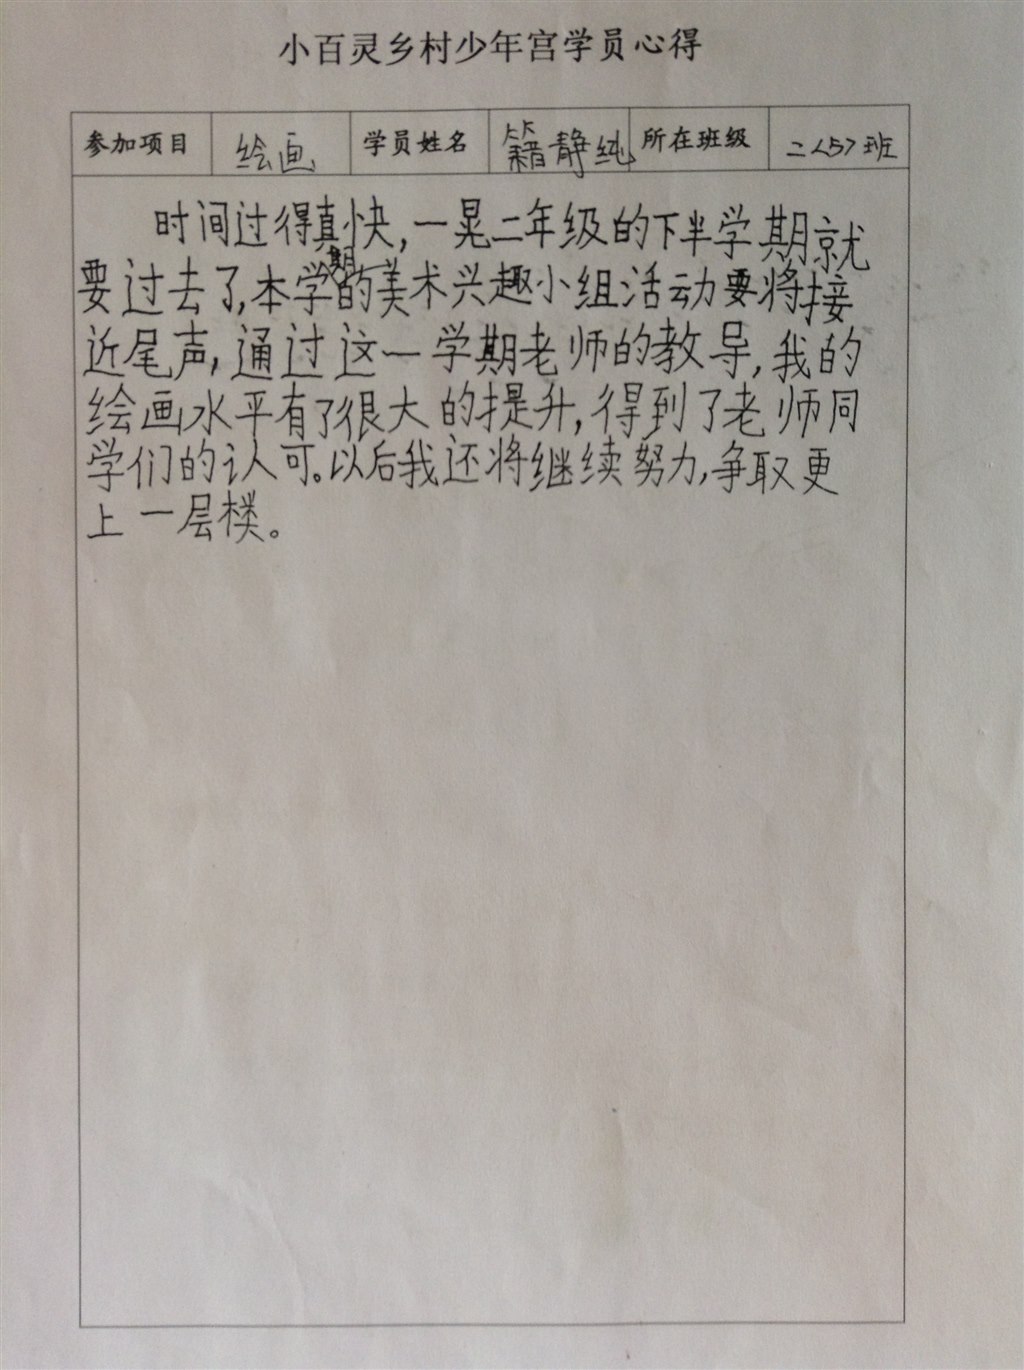 小百灵乡村少年宫学员心得
参加项目 绘画 学员姓名 籍静纯 所在班级 二<5>班
时间过得真快,一晃二年级的下半学期就
要过去了,本学期的美术兴趣小组活动要将接
近尾声,通过这一学期老师的教导,我的
绘画水平有了很大的提升,得到了老师同
学们的认可。以后我还将继续努力,争取更
上一层楼。